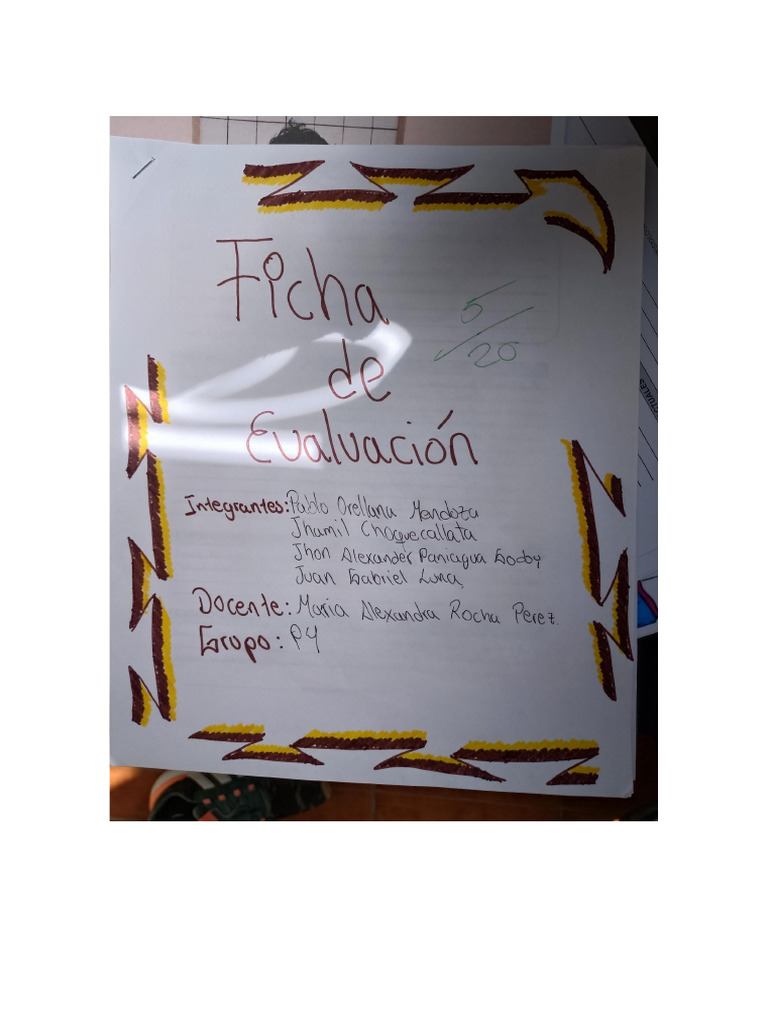 Ficha
5/20
de
Evaluación
Integrantes: Pablo Orellana Mendoza
Jhamil Choquecallata
Jhon Alexander Paniagua Godoy
Juan Gabriel Luna
Docente: Maria Alexandra Rocha Perez.
Grupo: P4